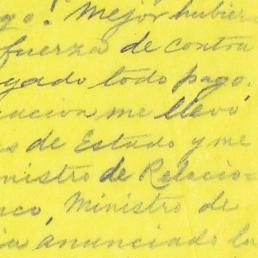 go. Mejor hubiera
fuerza de contra
gado todo pago.
cacion me llevó
s de Estado y me
nistro de Relacio-
nco, Ministro de
ia anunciado la